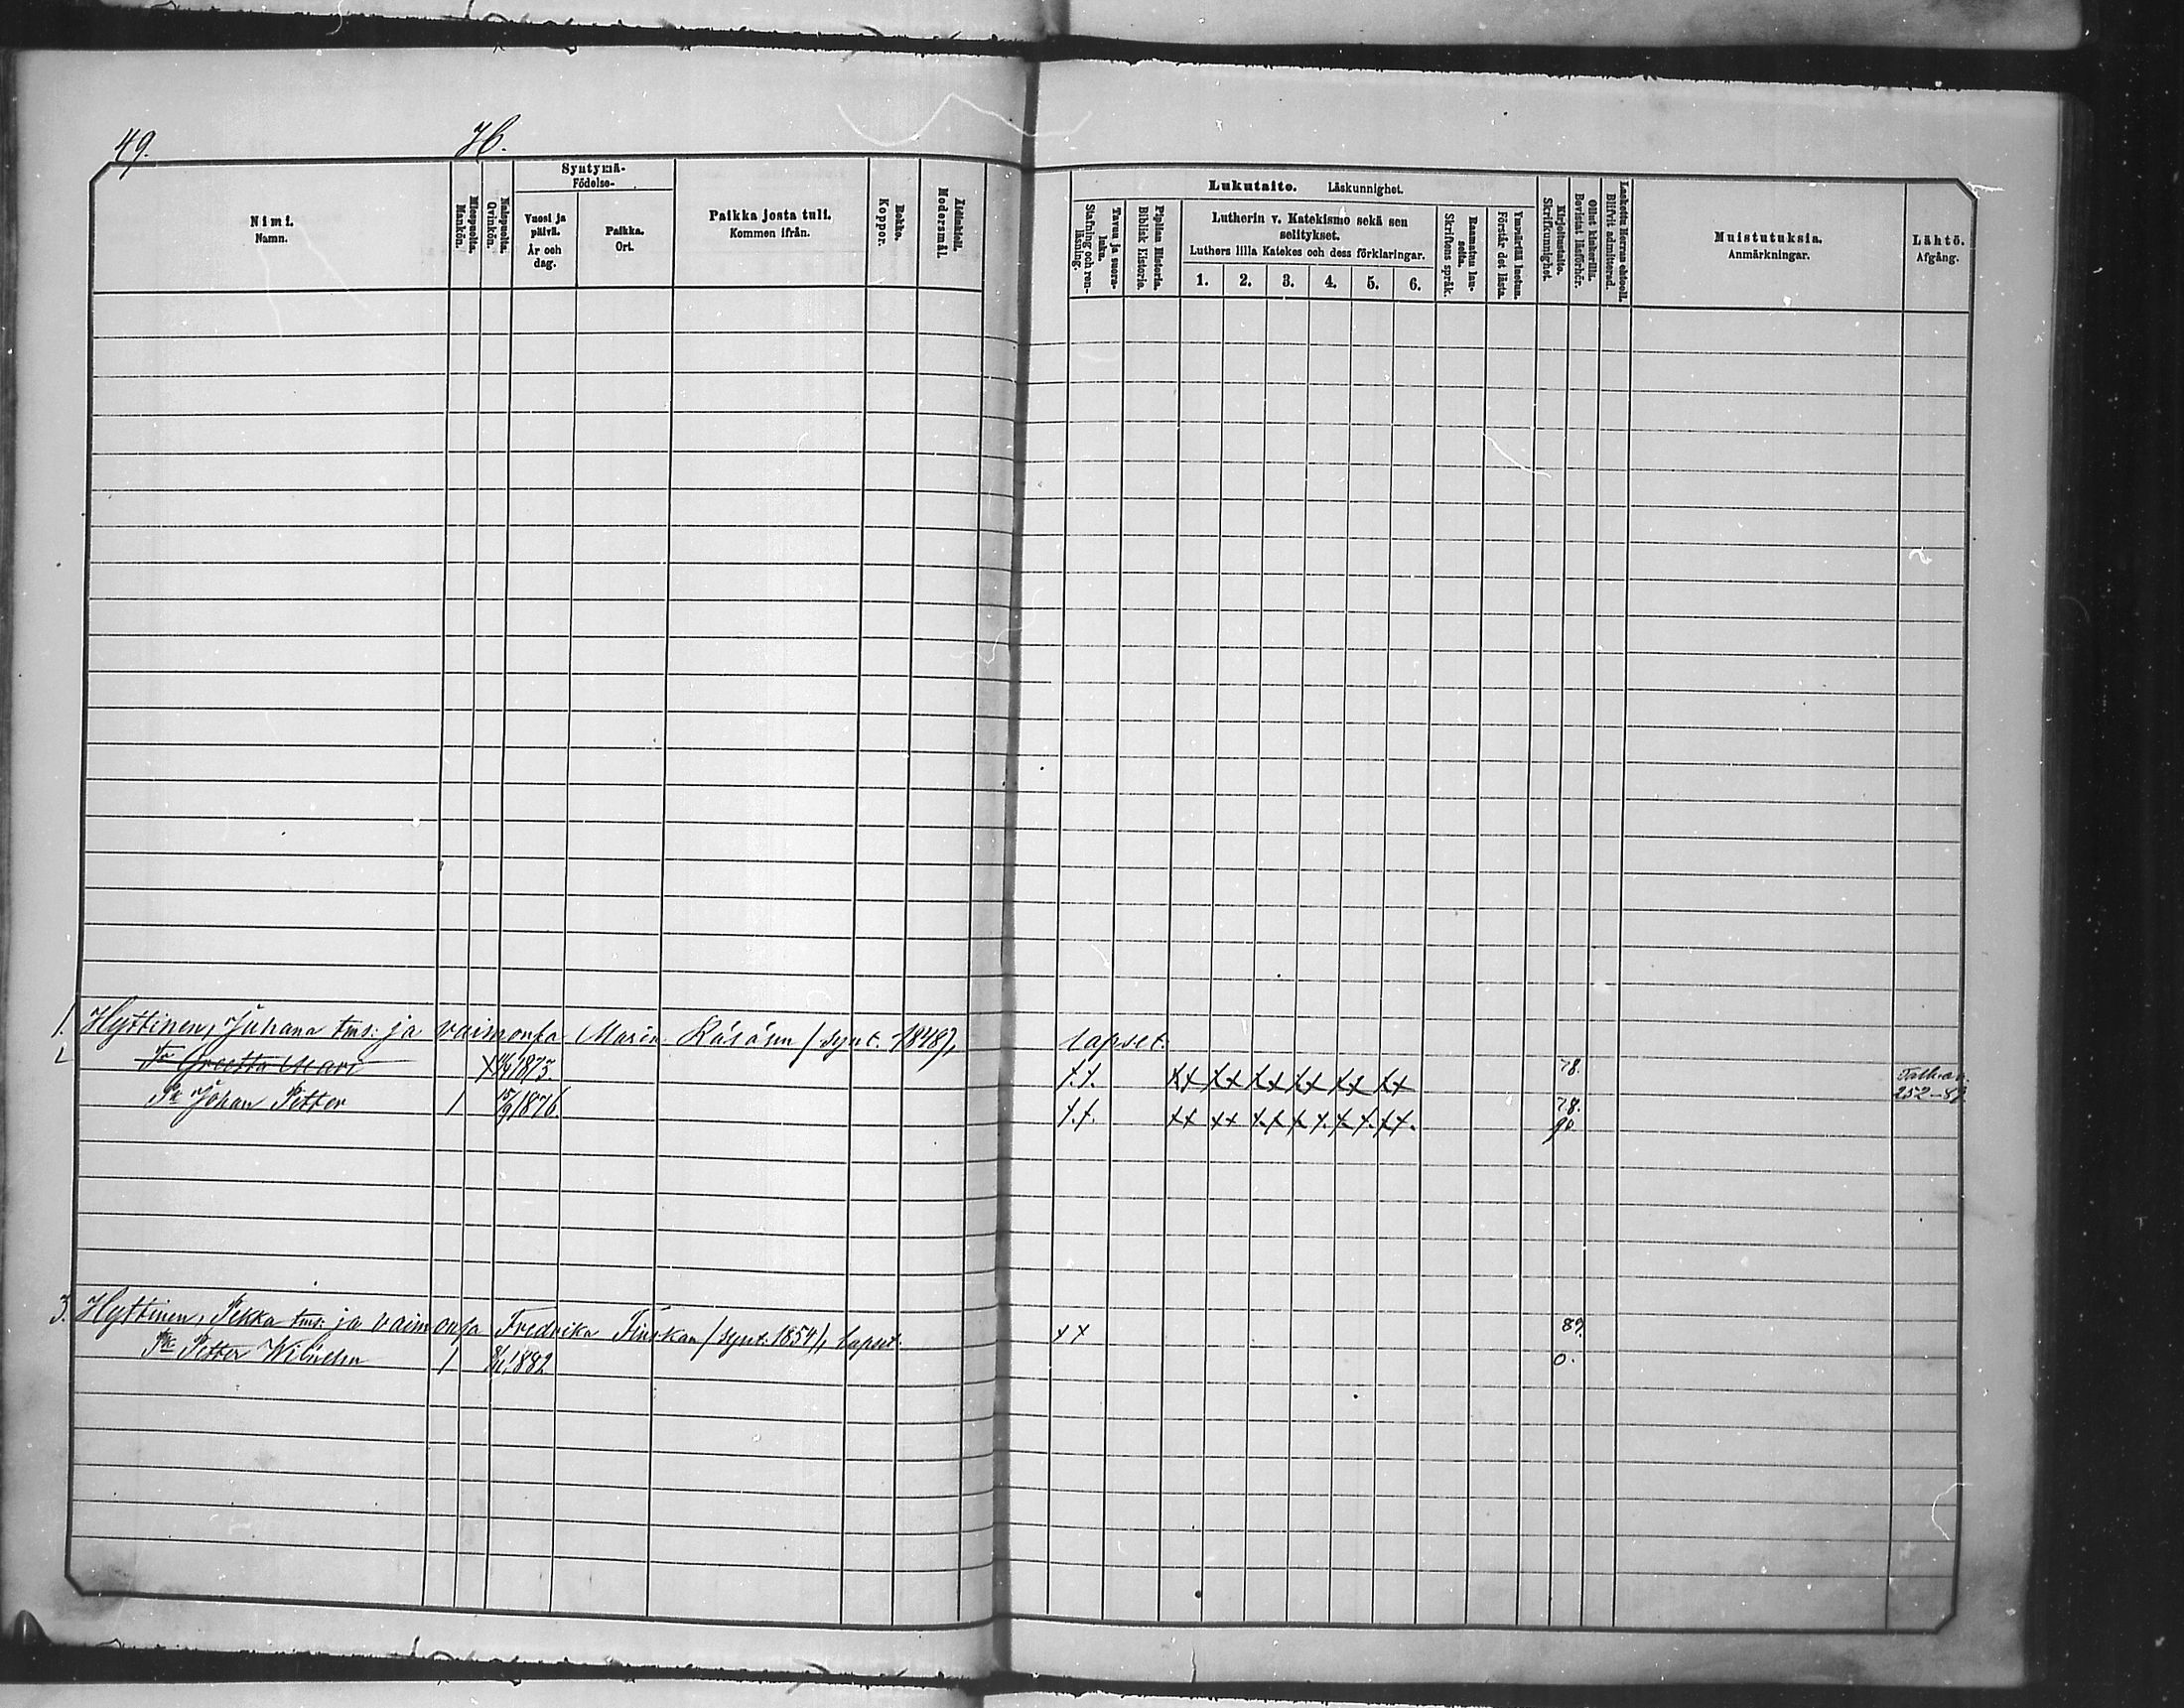 49. H.
Nimi.
Namn.
Miespuolta.
Mankön.
Naispuolta.
Qvinkön.
Syntymä-
Födelse-
Vuosi ja
päivä.
År och
dag.
Paikka.
Ort.
Paikka josta tuli.
Kommen ifrån.
Rokko.
Koppor.
Äidinkieli.
Modersmål.
Lukutaito. Läskunnighet.
Tavuu ja suora-
luku.
Stafning och ren-
läsning.
Piplian Historia.
Biblisk Historie.
Lutherin v. Katekismo sekä sen
selitykset.
Luthers lilla Katekes och dess förklaringar.
1. 2. 3. 4. 5. 6.
Raamatun lau-
seita.
Skriftens språk.
Ymmärtää luetun.
Förstår det lästa.
Kirjoitustaito.
Skrifkunnighet.
Ollut kinkerillä.
Bevistat läsförhör.
Laskettu Herran ehtooll.
Blifvit admitterad.
Muistutuksia.
Anmärkningar.
Lähtö.
Afgång.
1. Hyttinen, Juhana tms: ja vaimonsa Marin Räsäsen (synt. 1848), lapset:
2 Tr Greetta Mari 1873. x.x. xx xx xx xx xx xx 78.
252-89
Pk Johan Petter 1 15/9 1876. x.x. xx xx x.x x x. x x. xx. 78.
90
3. Hyttinen, Pekka tms: ja vaimonsa Fredrika Tirskan (synt. 1854), lapset: xx 89.
Pk Petter Wilhelm 1 1882 0.